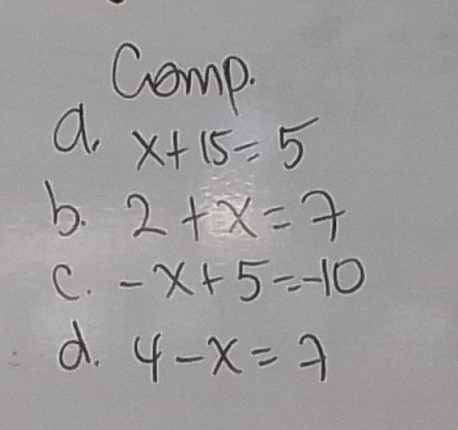 Comp.
a. x+15=5
b. 2+x=7
c. -x+5=-10
d. 4-x=7